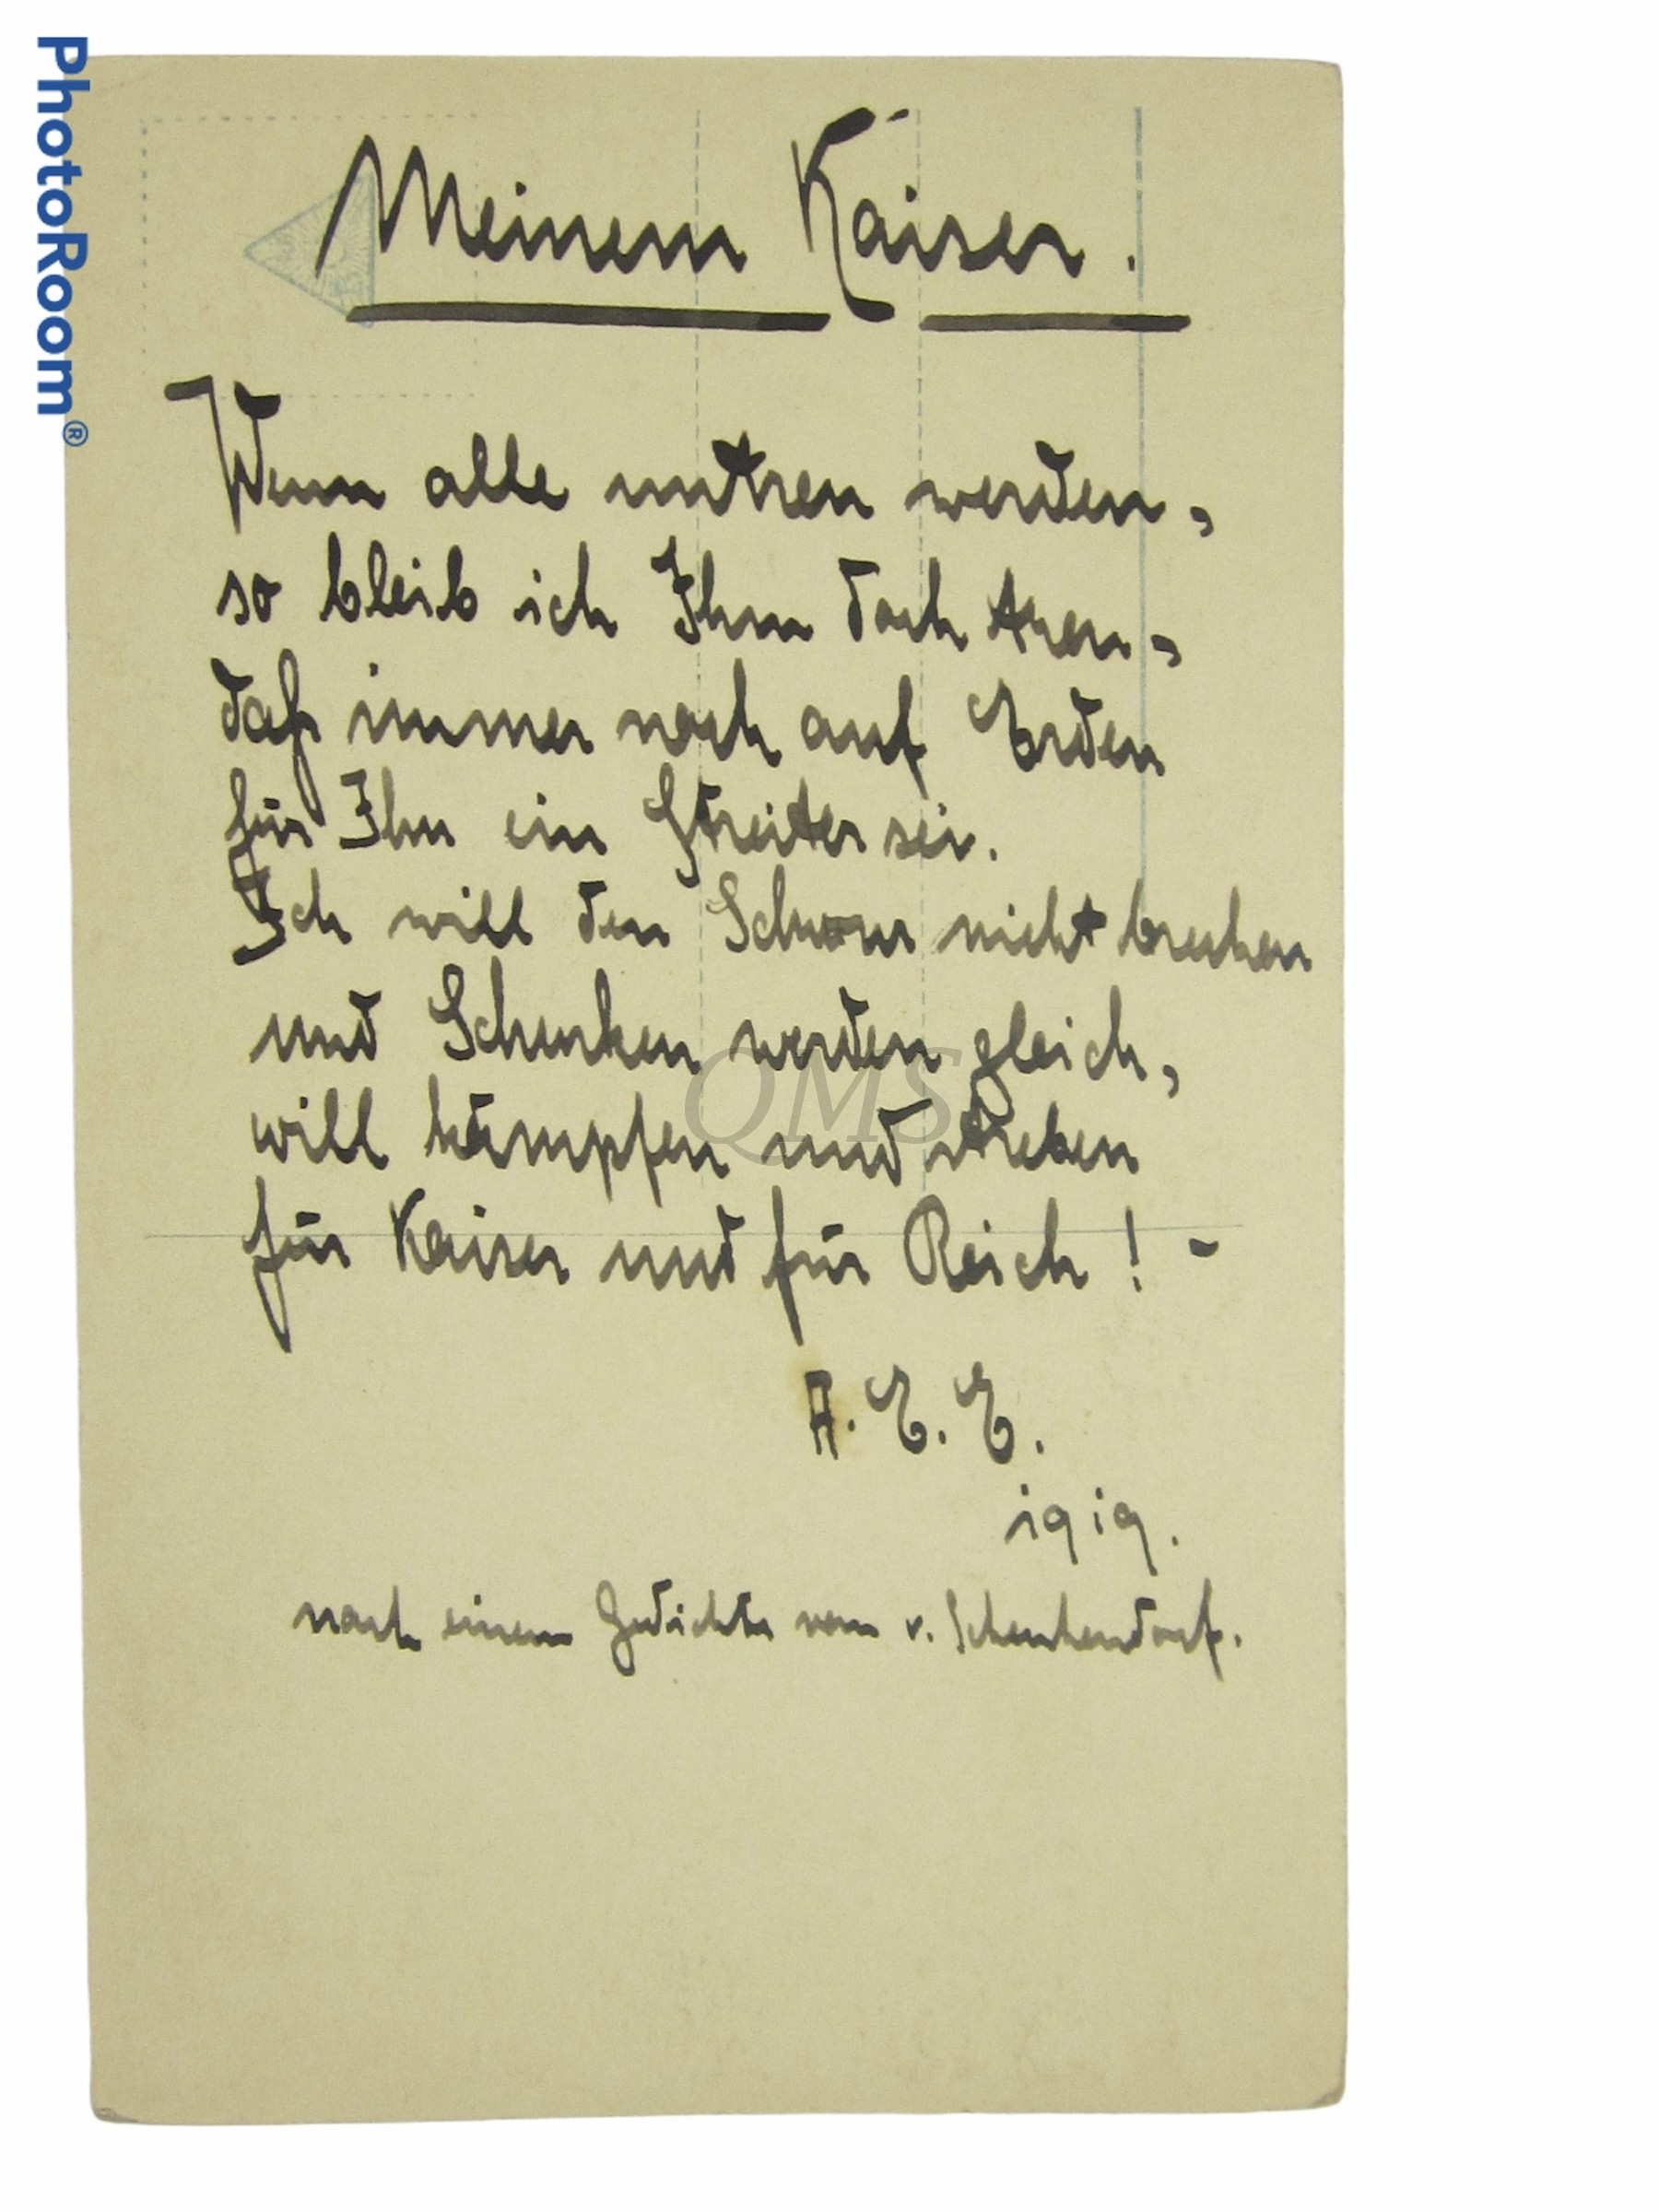 Meinem Kaiser.
Wenn alle untreu werden,
so bleib ich Ihm doch treu,
daß immer noch auf Erden
für Ihn ein Streiter sei.
Ich will den Schwur nicht brechen
und Schurken werden gleich,
will kämpfen und streben
für Kaiser und für Reich! -
A. E. E.
1919.
nach einem Gedichte von v. Schenkendorf.
PhotoRoom®
QMS